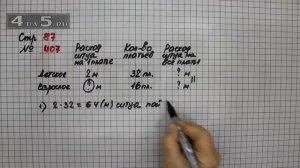 4DA5.RU
Стр 87
№ 407
Расход ситца на 1 платье
Кол-во платьев
Расход ситца на все платье
Детское 2 м 32 пл. ? м
Взрослое ? м 16 пл. ? м
1) 2·32 = 64 (м) ситца пой